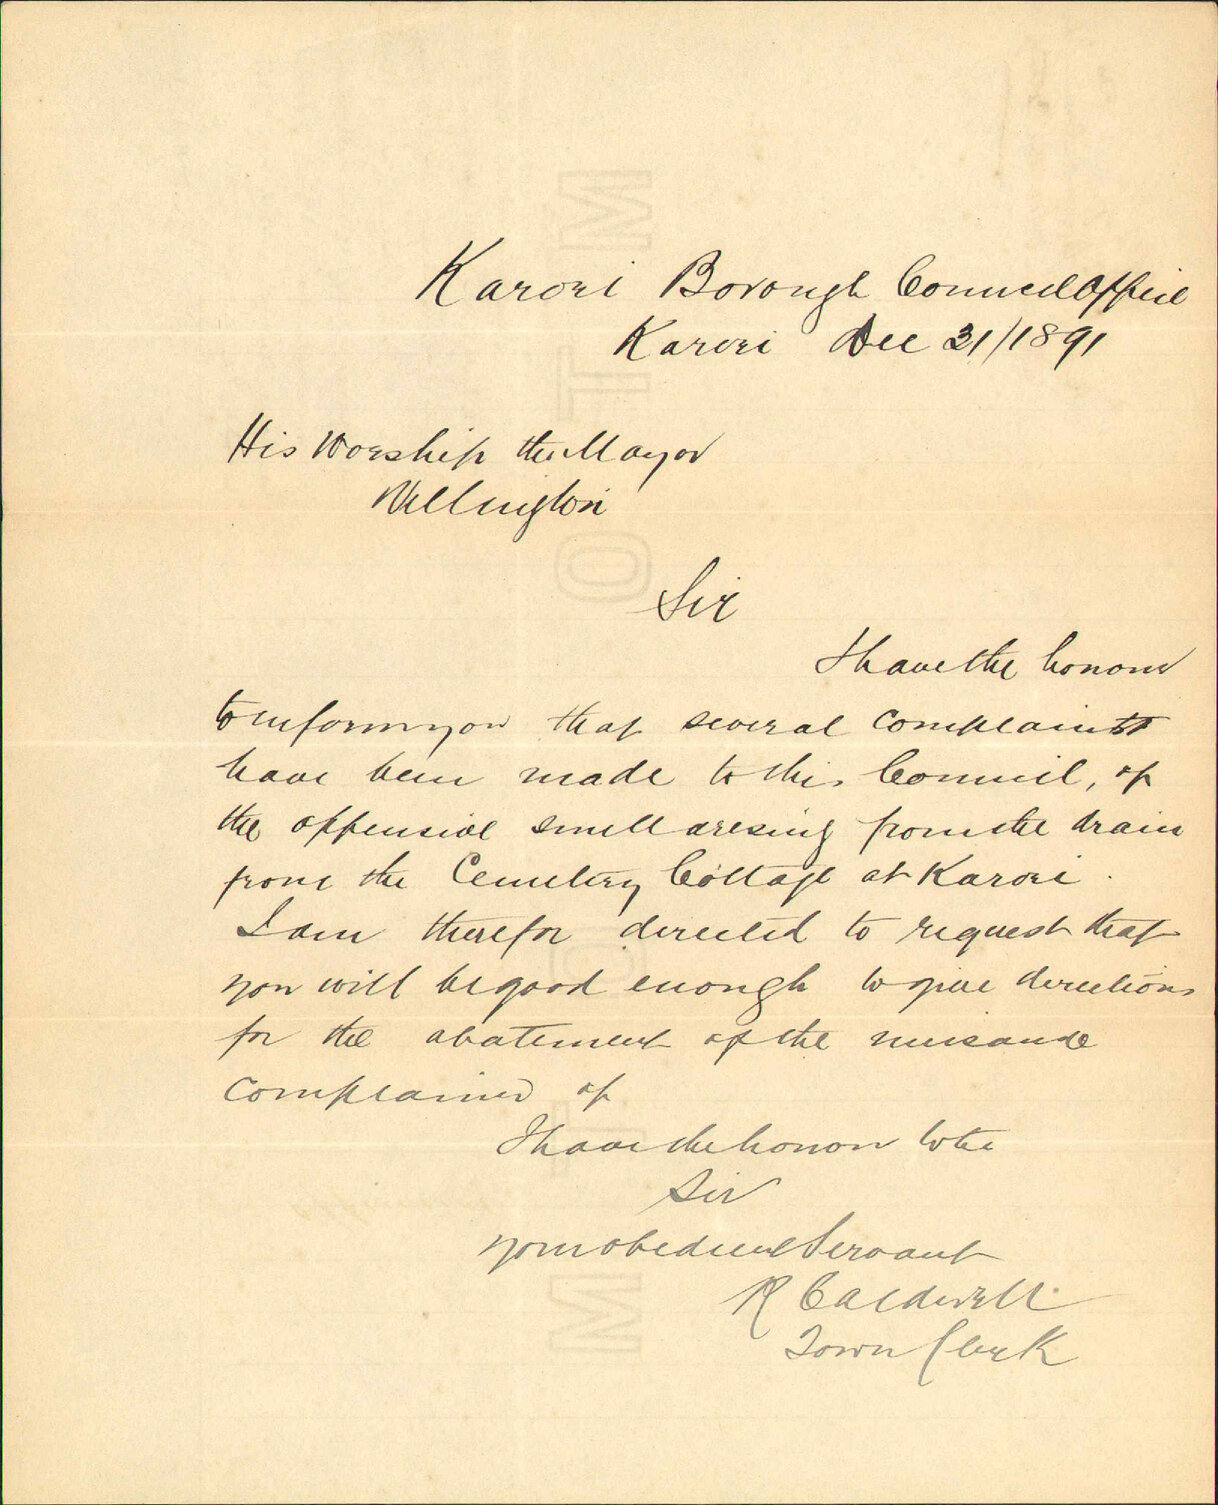 Karori Borough Council Office
Karori Dec 21/1891
His Worship the Mayor
Wellington
Sir
I have the honour
to inform you that several complaints
have been made to this Council, of
the offensive smell aresing from the drain
from the Cemetery Cottage at Karori.
I am therefor directed to request that
you will be good enough to give directions
for the abatement of the nuisance
complained of
I have the honor to be
Sir
your obedient Servant
R Caldwell
Town Clerk